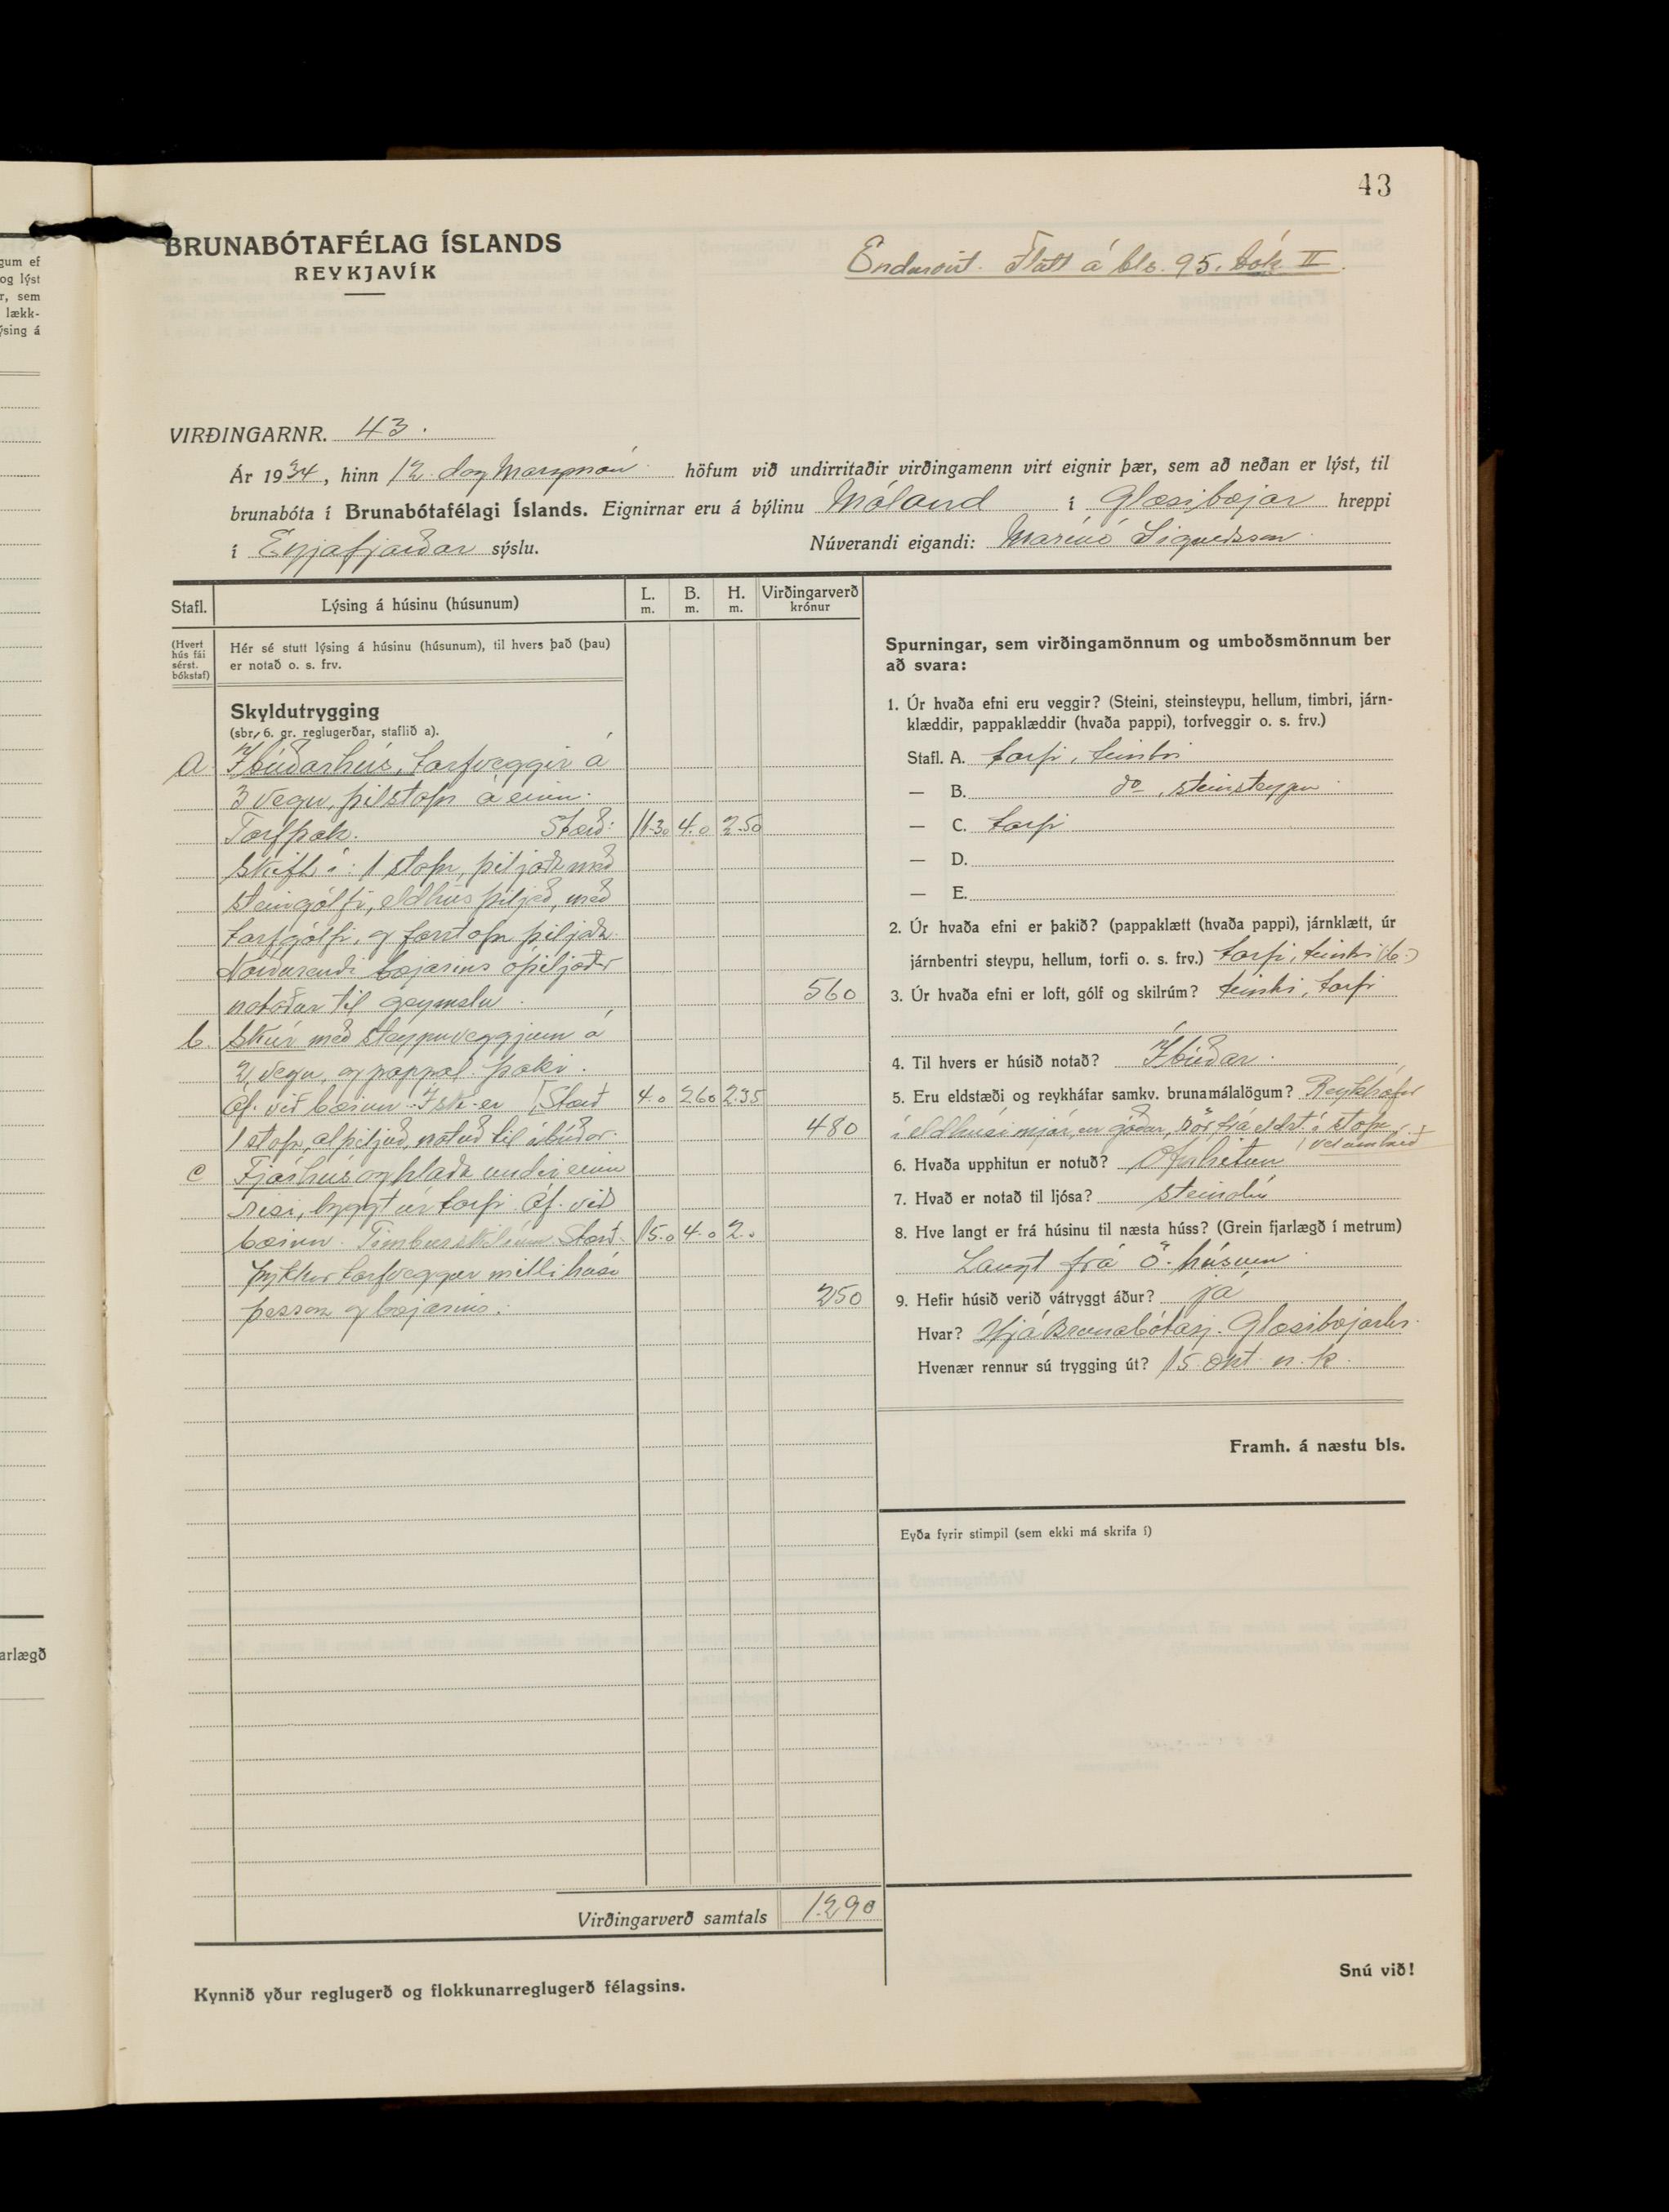 43
BRUNABÓTAFÉLAG ÍSLANDS
REYKJAVÍK
Endurvirt. Flutt á bls. 95. bók II.
VIRÐINGARNR. 43.
Ár 1934, hinn 12. dag Marzmán. höfum við undirritaðir virðingamenn virt eignir þær, sem að neðan er lýst, til
brunabóta í Brunabótafélagi Íslands. Eignirnar eru á býlinu Móland í Glæsibæjar hreppi
í Eyjafjarðar sýslu. Núverandi eigandi: Marínó Sigurðsson
Stafl. Lýsing á húsinu (húsunum) L. m. B. m. H. m. Virðingarverð krónur
(Hvert hús fái sérst. bókstaf)
Hér sé stutt lýsing á húsinu (húsunum), til hvers það (þau)
er notað o. s. frv.
Skyldutrygging
(sbr. 6. gr. reglugerðar, staflið a).
a Íbúðarhús, torfveggir á
3 vegu, þilstafn á einn.
Torfþak. Stærð: 11.30 4.0 2.50
Skift í: 1 stofu, þiljaða með
steingólfi, eldhús þiljað, með
torfgólfi, og forstofu þiljaða.
Norðurendi bæjarins óþiljaður
notaður til geymslu. 560
b. Skúr með steypuveggjum á
2 vegu, og pappal. þaki.
Áf. við bæinn. Í sk. er Stærð 4.0 2.60 2.35
1 stofa, alþiljuð, notuð til íbúðar. 480
c Fjárhús og hlaða undir einu
risi, byggt úr torfi. Áf. við
bæinn. Timburskilrúm. Stærð. 15.0 4.0 2.0
Þykkur torfveggur milli húsa
þessara og bæjarins. 250
Virðingarverð samtals 1290
Kynnið yður reglugerð og flokkunarreglugerð félagsins.
Spurningar, sem virðingamönnum og umboðsmönnum ber
að svara:
1. Úr hvaða efni eru veggir? (Steini, steinsteypu, hellum, timbri, járn-
klæddir, pappaklæddir (hvaða pappi), torfveggir o. s. frv.)
Stafl. A. torfi, timbri
— B. do, steinsteypu
— C. torfi
— D.
— E.
2. Úr hvaða efni er þakið? (pappaklætt (hvaða pappi), járnklætt, úr
járnbentri steypu, hellum, torfi o. s. frv.) torfi, timbri (b.)
3. Úr hvaða efni er loft, gólf og skilrúm? timbri, torfi
4. Til hvers er húsið notað? Íbúðar.
5. Eru eldstæði og reykháfar samkv. brunamálalögum? Reykháfur
í eldhúsi mjór, en góður, rör frá eldst. í stofu
vel umbúið
6. Hvaða upphitun er notuð? Ofnhitun
7. Hvað er notað til ljósa? steinolía
8. Hve langt er frá húsinu til næsta húss? (Grein fjarlægð í metrum)
Langt frá ö. húsum
9. Hefir húsið verið vátryggt áður? já
Hvar? Hjá Brunabótasj. Glæsibæjarhr.
Hvenær rennur sú trygging út? 15. okt. n. k.
Framh. á næstu bls.
Eyða fyrir stimpil (sem ekki má skrifa í)
Snú við!
gum ef
og lýst
r, sem
lækk-
ýsing á
arlægð